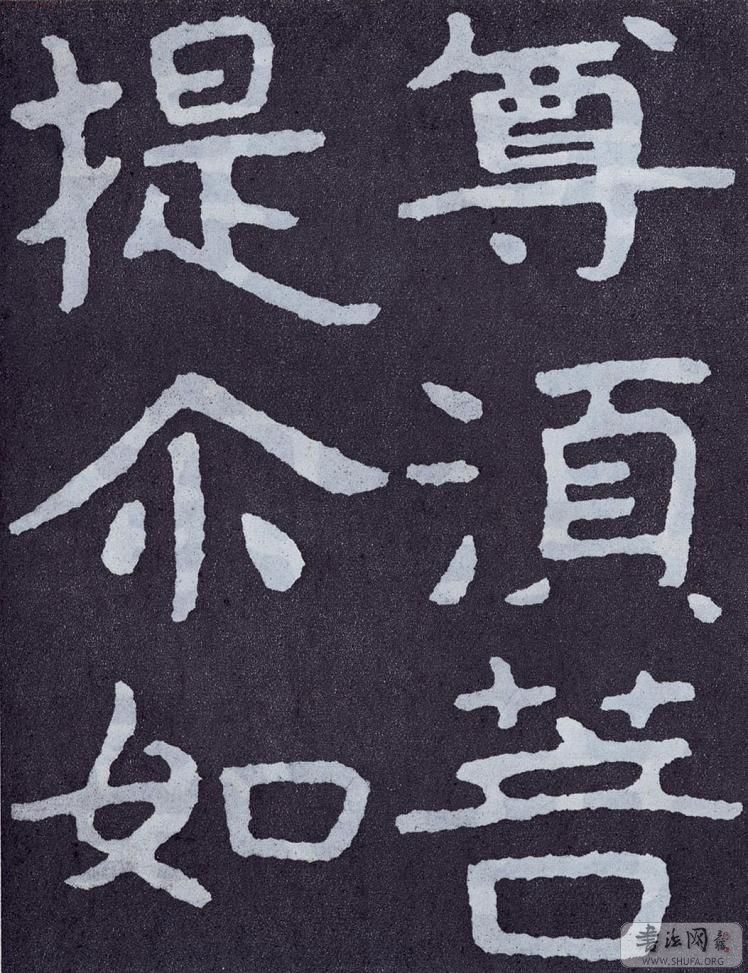 尊湏菩
提尒如
書法网
WWW.SHUFA.ORG